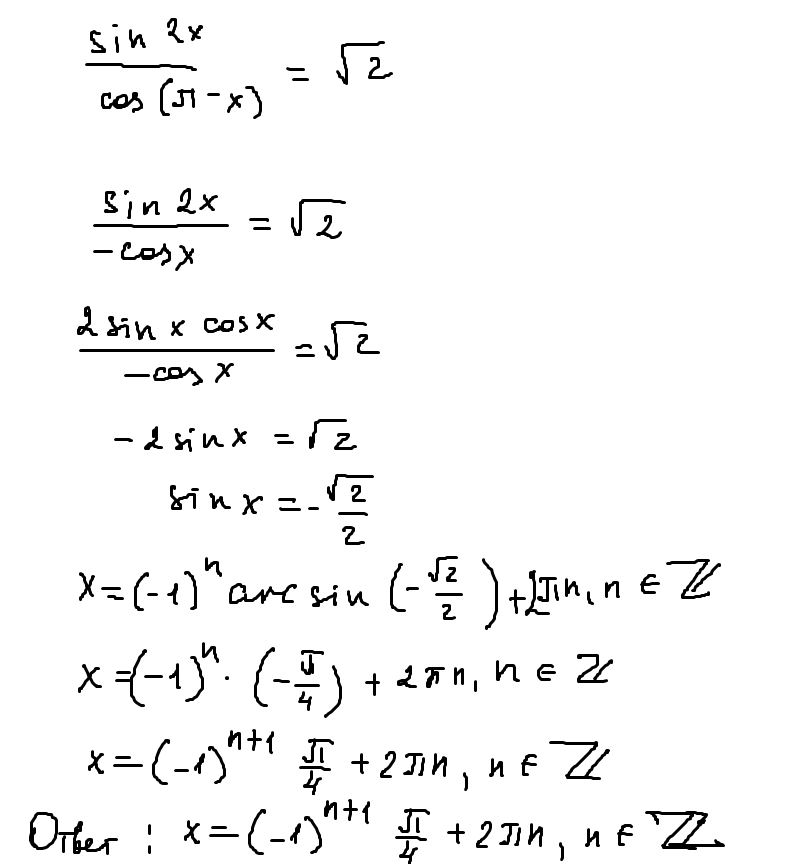 sin 2x / cos (π - x) = √2
sin 2x / -cos x = √2
2 sin x cos x / -cos x = √2
-2 sin x = √2
sin x = -√2/2
x = (-1)ⁿ arc sin (-√2/2) + 2πn, n ∈ ℤ
x = (-1)ⁿ · (-π/4) + 2πn, n ∈ ℤ
x = (-1)ⁿ⁺¹ π/4 + 2πn, n ∈ ℤ
Ответ : x = (-1)ⁿ⁺¹ π/4 + 2πn, n ∈ ℤ.